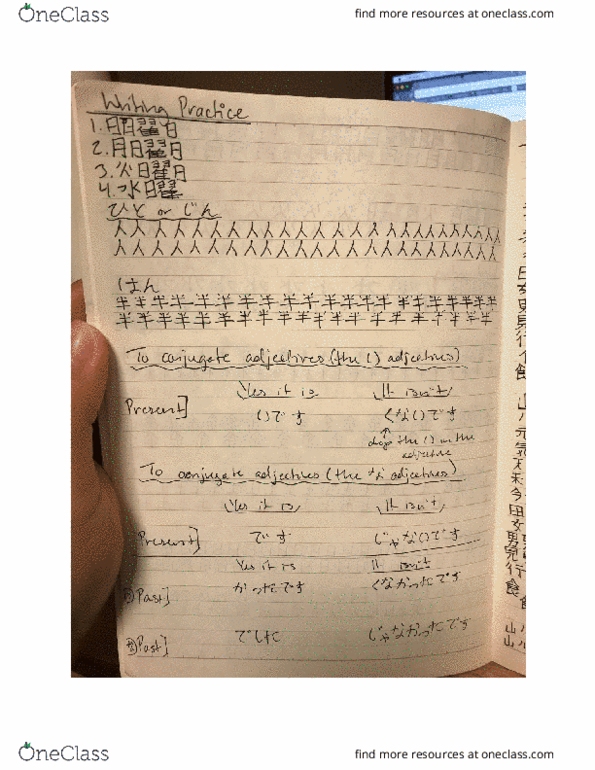 OneClass
find more resources at oneclass.com
Writing Practice
1.日曜日
2.月曜日
3.火曜日
4.水曜
ひと or じん
人人人人人人人人人人人人人人人人人人人人人人人
人人人人人人人人人人人人人人人人人人人人人人
はん
半半半半半半半半半半半半半半半半半半半半半
半半半半半半半半半半半半半半半半半半半半
To conjugate adjectives (the い adjectives)
Yes it is It isn't
Present] いです くないです
drop the い in the
adjective
To conjugate adjectives (the な adjectives)
Yes it is It isn't
Present] です じゃないです
Yes it is It isn't
い Past] かったです くなかったです
な Past] でした じゃなかったです
OneClass
find more resources at oneclass.com